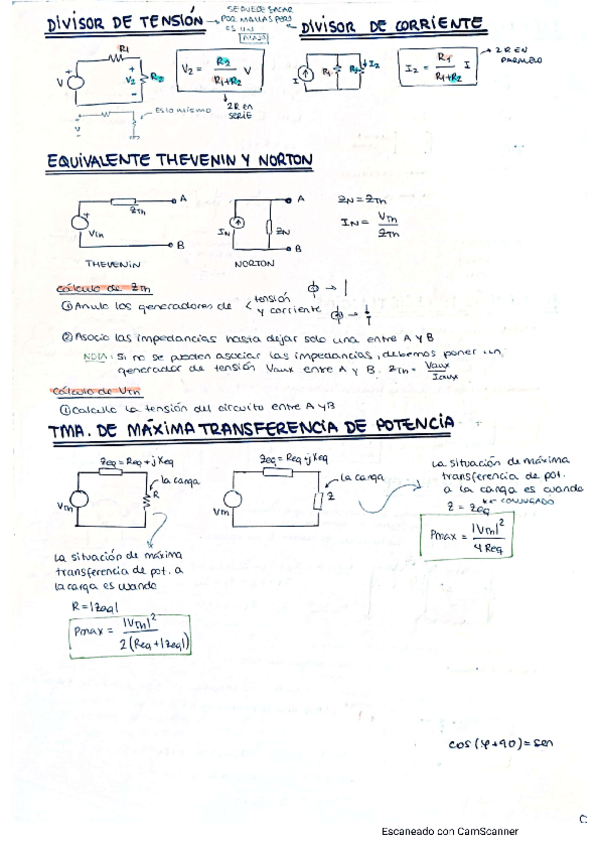 DIVISOR DE TENSIÓN
SE PUEDE SACAR
POR MALLAS PERO
ES UN
ATAJO
DIVISOR DE CORRIENTE
R1
V
+
V2
-
R2
V2 = R2 / (R1+R2) V
2R en
serie
Es lo mismo
I
R1
R2
I2
I2 = R1 / (R1+R2) I
2R EN
PARALELO
EQUIVALENTE THEVENIN Y NORTON
ZTh
A
B
THEVENIN
IN
ZN
A
B
NORTON
ZN = ZTh
IN = VTh / ZTh
Cálculo de ZTh
① Anulo los generadores de < tensión
y corriente
② Asocio las impedancias hasta dejar solo una entre A y B
NOTA: Si no se pueden asociar las impedancias, debemos poner un
generador de tensión Vaux entre A y B. ZTh = Vaux / Iaux
Cálculo de VTh
① Calculo la tensión del circuito entre A y B
TMA. DE MÁXIMA TRANSFERENCIA DE POTENCIA
Zeq = Req + jXeq
la carga
R
VTh
Zeq = Req + jXeq
la carga
Z
VTh
La situación de máxima
transferencia de pot.
a la carga es cuando
Z = Zeq* ← CONJUGADO
Pmax = |VTh|² / 4 Req
La situación de máxima
transferencia de pot. a
la carga es cuando
R = |Zeq|
Pmax = |VTh|² / 2(Req + |Zeq|)
cos(φ+90) = sen
Escaneado con CamScanner